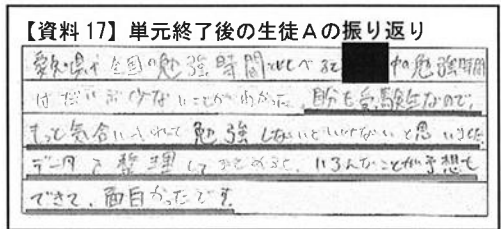 【資料 17】単元終了後の生徒Aの振り返り
愛知県や全国の勉強時間とくらべると 中の勉強時間
はだいぶ少ないことがわかった。自分も受験生なので、
もっと気合いいれて勉強しないといけないと思いました。
データを整理してまとめると、いろんなことが予想も
できて、面白かったです。